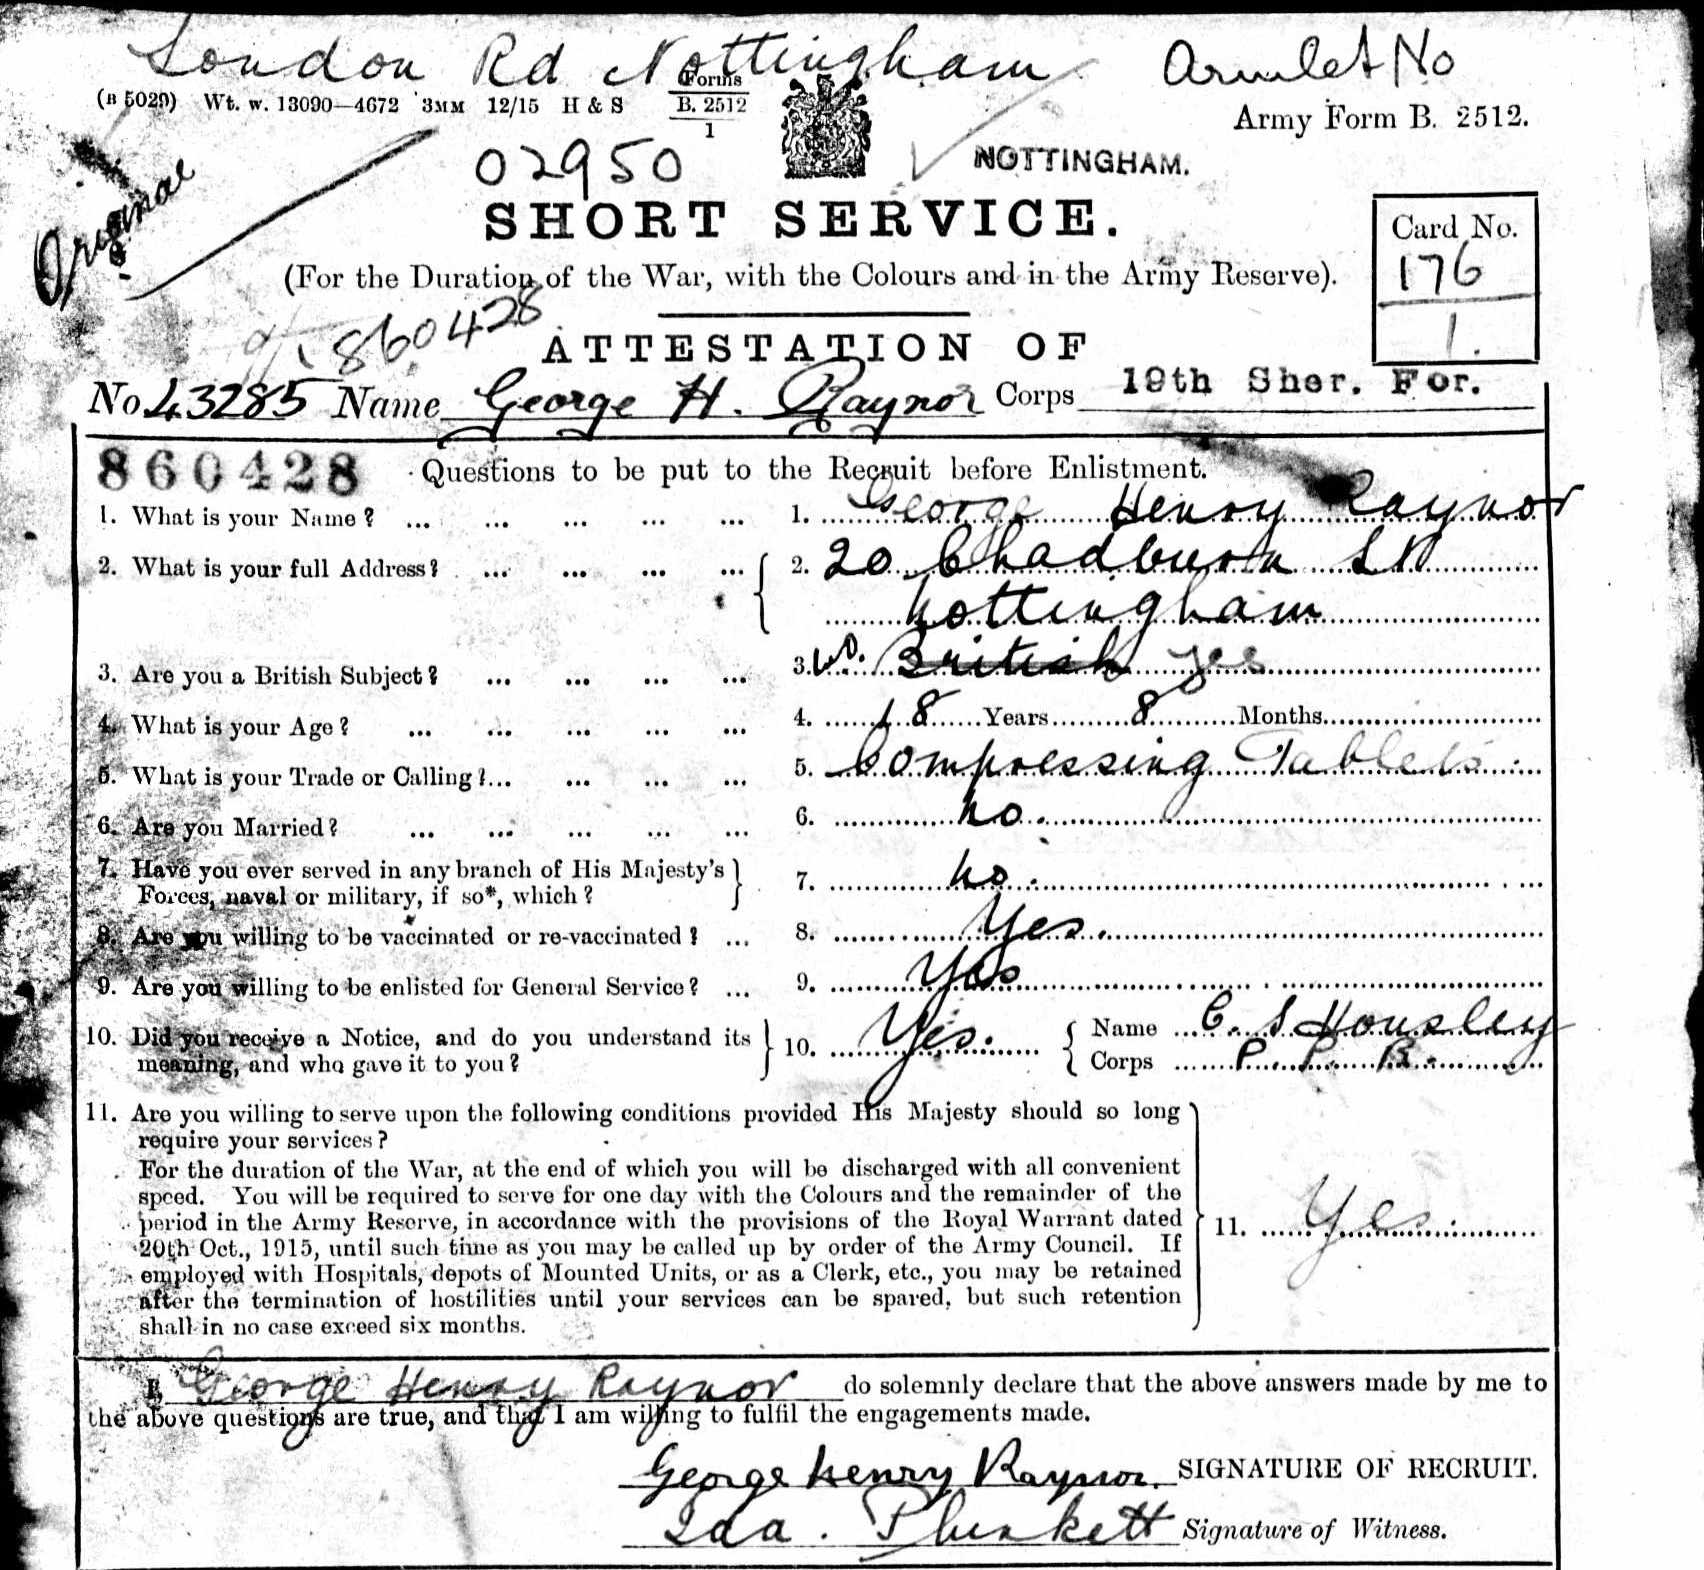 London Rd Nottingham Armlet No
(B 5029) Wt. w. 13090—4672 3MM 12/15 H & S Forms B. 2512 1 Army Form B. 2512.
Original
02950 NOTTINGHAM.
SHORT SERVICE.
Card No.
176
1.
(For the Duration of the War, with the Colours and in the Army Reserve).
860428
ATTESTATION OF
No 43285 Name George H. Raynor Corps 19th Sher. For.
860428 Questions to be put to the Recruit before Enlistment.
1. What is your Name? ... ... ... ... ... 1. George Henry Raynor
2. What is your full Address? ... ... ... ... 2. 20 Chadburn St
Nottingham
3. Are you a British Subject? ... ... ... ... 3. British Yes
4. What is your Age? ... ... ... ... ... 4. 18 Years 8 Months
5. What is your Trade or Calling?... ... ... ... 5. Compressing Tablets
6. Are you Married? ... ... ... ... ... 6. no.
7. Have you ever served in any branch of His Majesty's
Forces, naval or military, if so*, which? 7. no.
8. Are you willing to be vaccinated or re-vaccinated? ... 8. Yes.
9. Are you willing to be enlisted for General Service? ... 9. Yes
10. Did you receive a Notice, and do you understand its
meaning, and who gave it to you? 10. Yes. Name C. S Housley
Corps P. P. B.
11. Are you willing to serve upon the following conditions provided His Majesty should so long
require your services?
For the duration of the War, at the end of which you will be discharged with all convenient
speed. You will be required to serve for one day with the Colours and the remainder of the
period in the Army Reserve, in accordance with the provisions of the Royal Warrant dated
20th Oct., 1915, until such time as you may be called up by order of the Army Council. If
employed with Hospitals, depots of Mounted Units, or as a Clerk, etc., you may be retained
after the termination of hostilities until your services can be spared, but such retention
shall in no case exceed six months.
11. Yes.
I, George Henry Raynor do solemnly declare that the above answers made by me to
the above questions are true, and that I am willing to fulfil the engagements made.
George Henry Raynor. SIGNATURE OF RECRUIT.
Ida. Plunkett Signature of Witness.